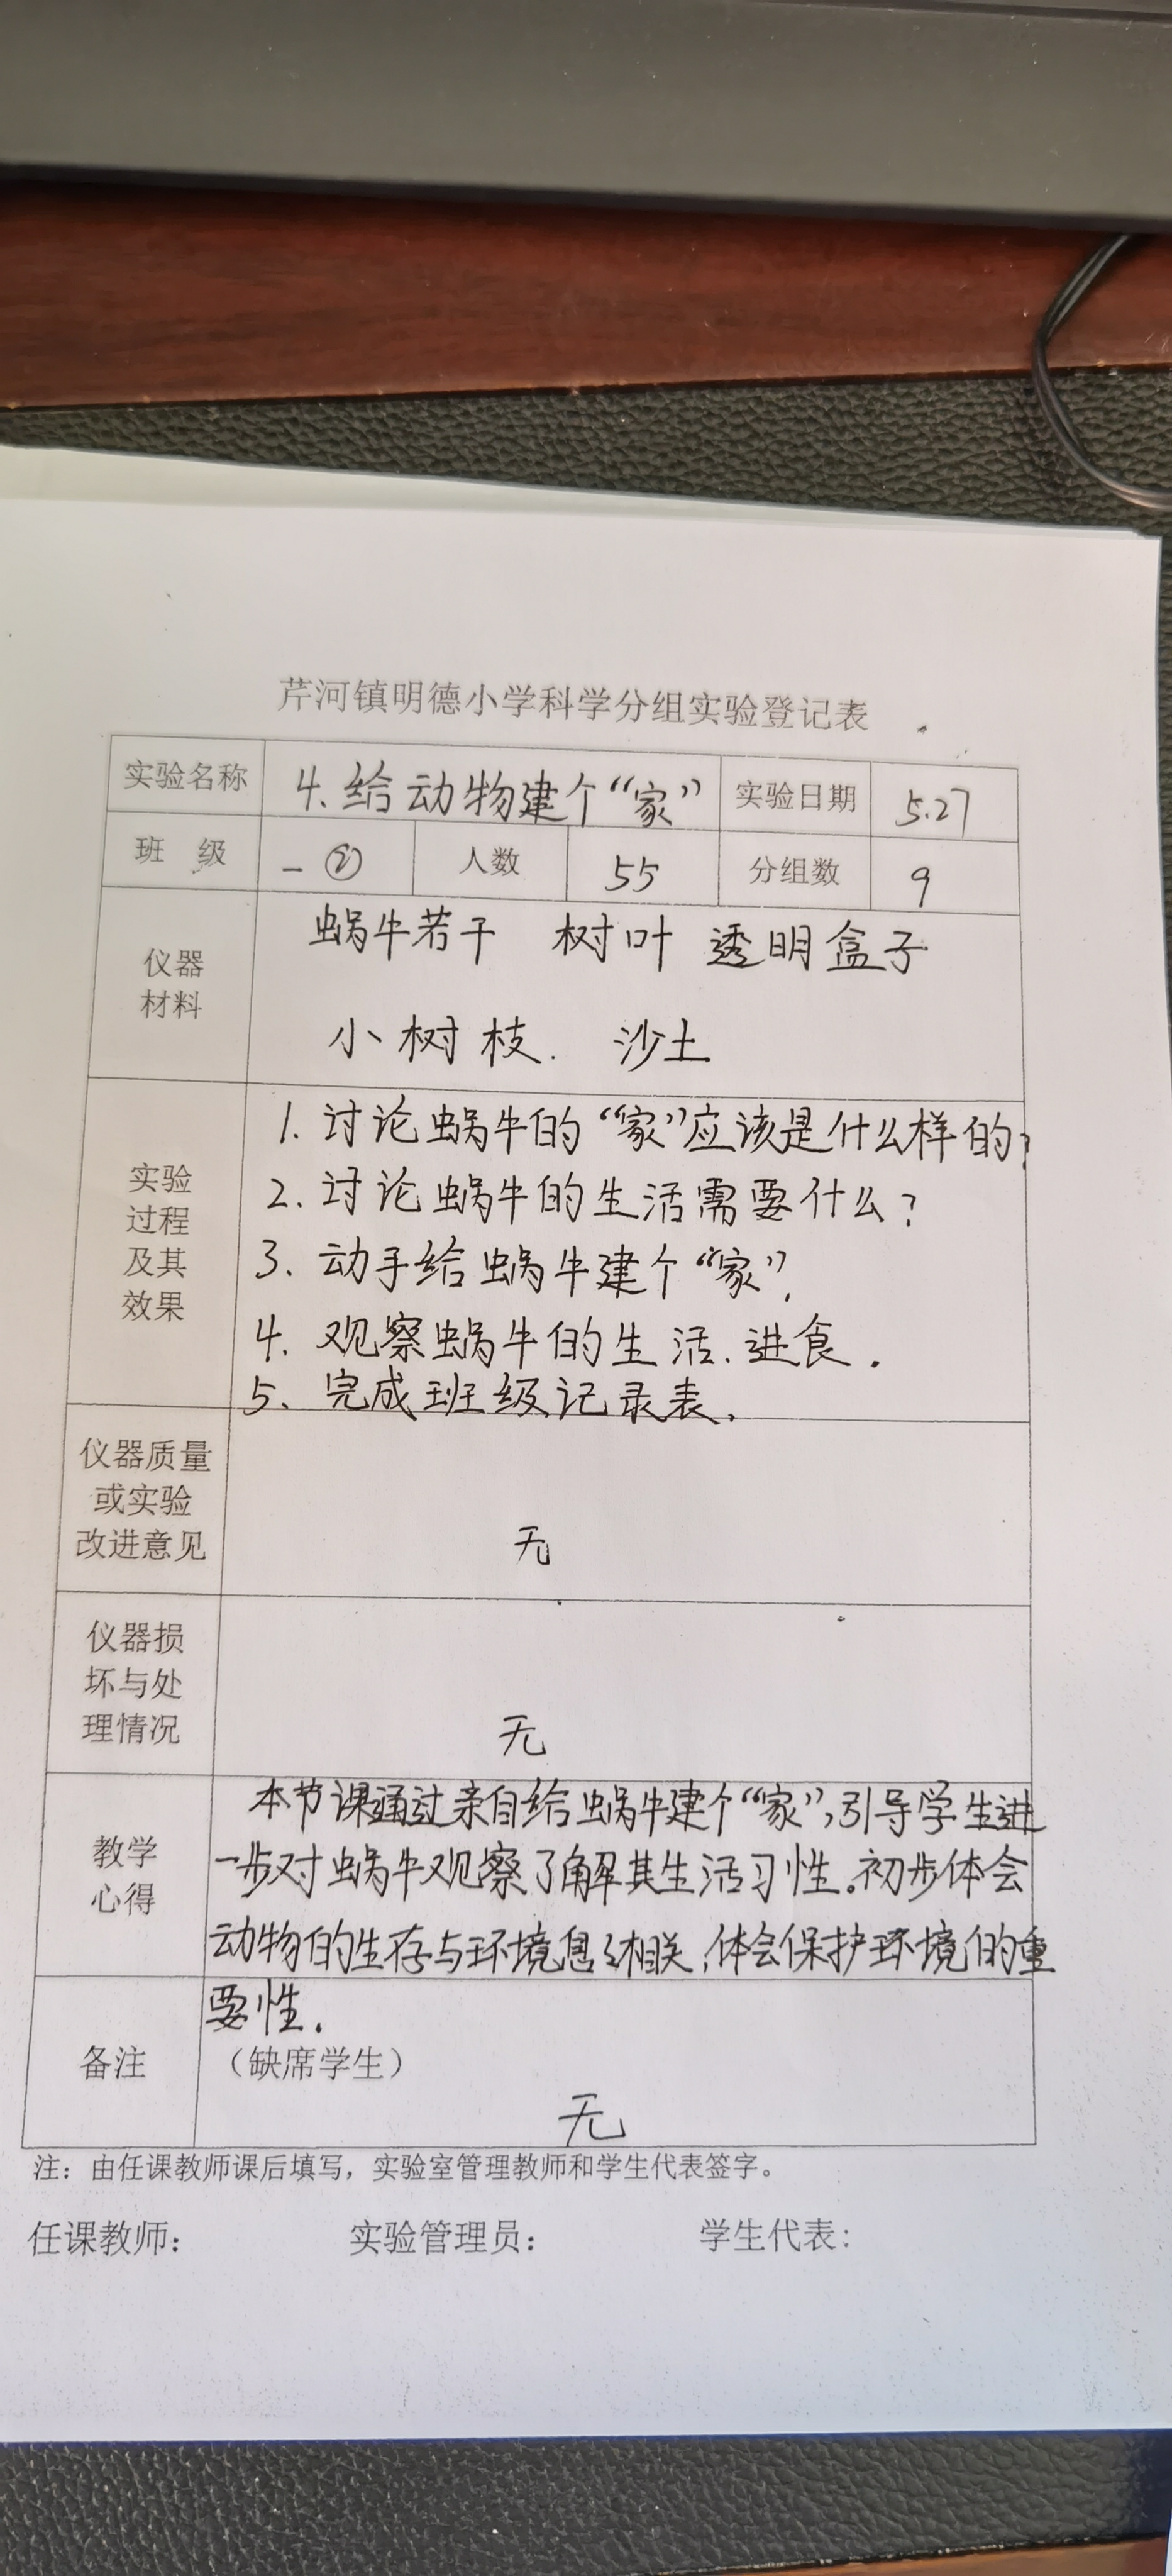 芹河镇明德小学科学分组实验登记表
实验名称 4.给动物建个“家” 实验日期 5.27
班 级 一② 人数 55 分组数 9
仪器
材料
蜗牛若干 树叶 透明盒子
小树枝. 沙土
实验
过程
及其
效果
1. 讨论蜗牛的“家”应该是什么样的?
2. 讨论蜗牛的生活需要什么?
3. 动手给蜗牛建个“家”.
4. 观察蜗牛的生活、进食.
5. 完成班级记录表.
仪器质量
或实验
改进意见
无
仪器损
坏与处
理情况
无
教学
心得
本节课通过亲自给蜗牛建个“家”,引导学生进
一步对蜗牛观察了解其生活习性。初步体会
动物的生存与环境息々相关,体会保护环境的重
要性.
备注
(缺席学生)
无
注：由任课教师课后填写，实验室管理教师和学生代表签字。
任课教师： 实验管理员： 学生代表：